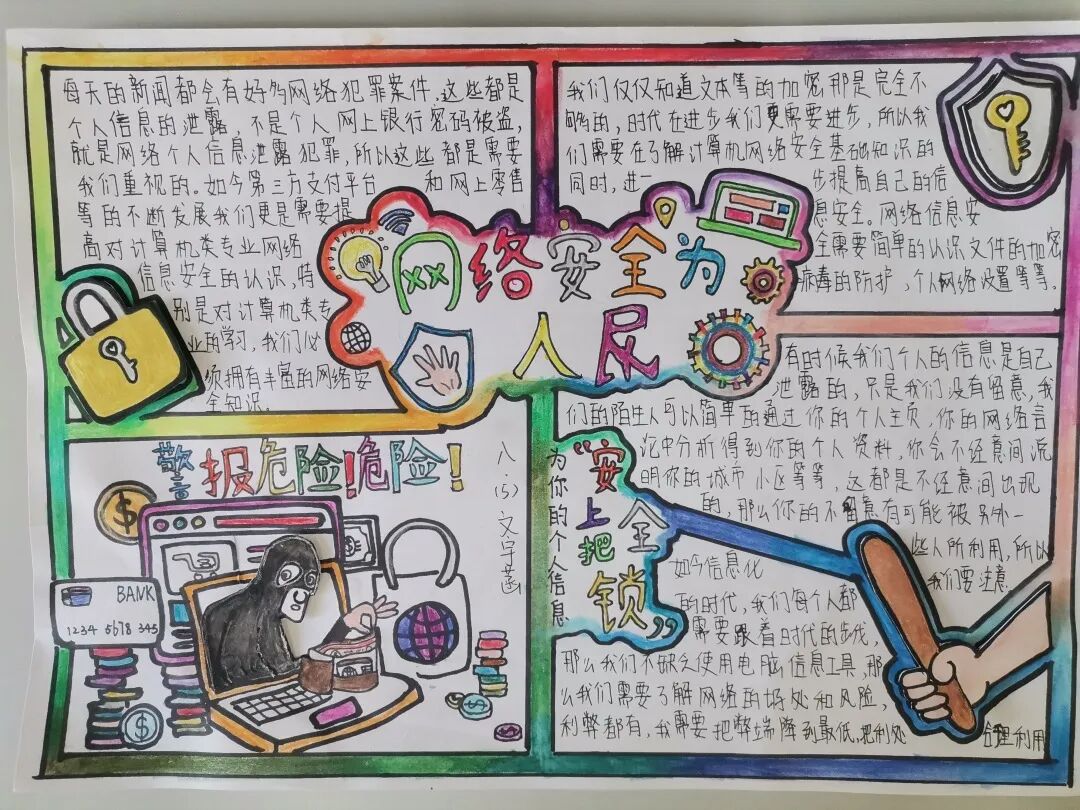 每天的新闻都会有好多网络犯罪案件,这些都是
个人信息的泄露,不是个人网上银行密码被盗,
就是网络个人信息泄露犯罪,所以这些都是需要
我们重视的。如今第三方支付平台 和网上零售
等的不断发展我们更是需要提
高对计算机类专业网络
信息安全的认识,特
别是对计算机类专
业的学习,我们必
须拥有丰富的网络安
全知识。
我们仅仅知道文本等的加密那是完全不
够的,时代在进步我们更需要进步,所以我
们需要在了解计算机网络安全基础知识的
同时,进一 步提高自己的信
息安全。网络信息安
全需要简单的认识文件的加密
病毒的防护,个人网络设置等等。
网络安全为
人民
有时候我们个人的信息是自己
泄露的,只是我们没有留意,我
们的陌生人可以简单的通过你的个人主页,你的网络言
论中分析得到你的个人资料,你会不经意间说
明你的城市小区等等,这都是不经意间出现
的,那么你的不留意有可能被另外一
些人所利用,所以
我们要注意
警报危险!危险!
八.(5)文宇菡
BANK
1234 5678 345
$
$
$
为你的个人信息
“安全
上把
锁”
如今信息化
的时代,我们每个人都
需要跟着时代的步伐,
那么我们不缺乏使用电脑信息工具,那
么我们需要了解网络的好处和风险,
利弊都有,我需要把弊端降到最低,把利处
合理利用